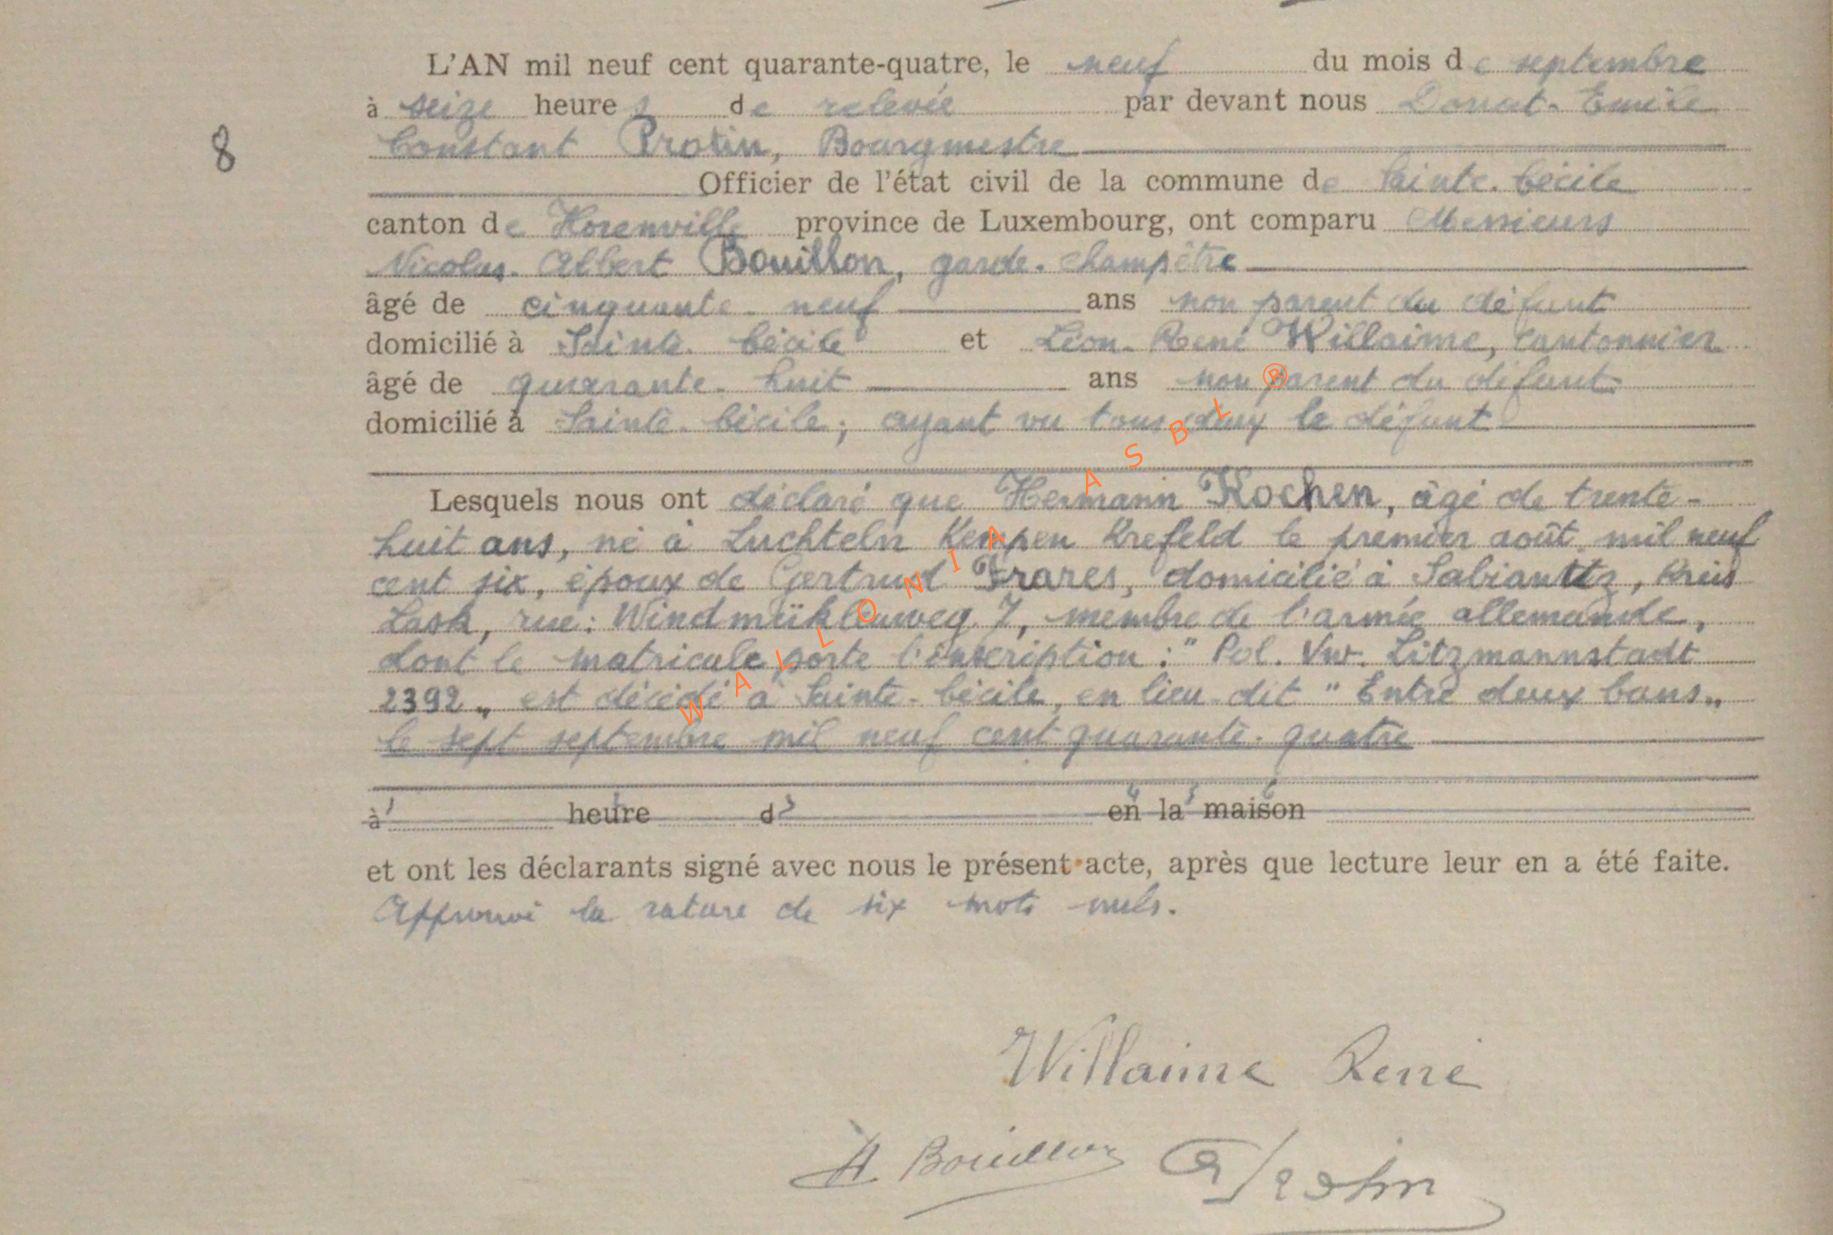 L'AN mil neuf cent quarante-quatre, le neuf du mois de septembre
à seize heures de relevée par devant nous Donat-Emile
8
Constant Protin, Bourgmestre
Officier de l'état civil de la commune de Sainte-Cécile
canton de Florenville province de Luxembourg, ont comparu Messieurs
Nicolas-Albert Bouillon, garde-champêtre
âgé de cinquante-neuf ans non parent du défunt
domicilié à Sainte-Cécile et Léon-René Willaime, cantonnier
âgé de quarante-huit ans non parent du défunt
domicilié à Sainte-Cécile; ayant vu tous deux le défunt
Lesquels nous ont déclaré que Hermann Kochen, âgé de trente-
huit ans, né à Luchteln Kempen Krefeld le premier août mil neuf
cent six, époux de Gertrud Frares, domicilié à Kreis
Lask, rue: 7, membre de l'armée allemande,
dont le matricule porte l'inscription: "Pol. Vw. Litzmannstadt
2392" est décédé à Sainte-Cécile, en lieu-dit "Entre deux bans"
le sept septembre mil neuf cent quarante-quatre
à heure d en la maison
et ont les déclarants signé avec nous le présent acte, après que lecture leur en a été faite.
Approuvé la rature de six mots nuls.
Willaime René
A Bouillon Protin
WALLONIA ASBL ®